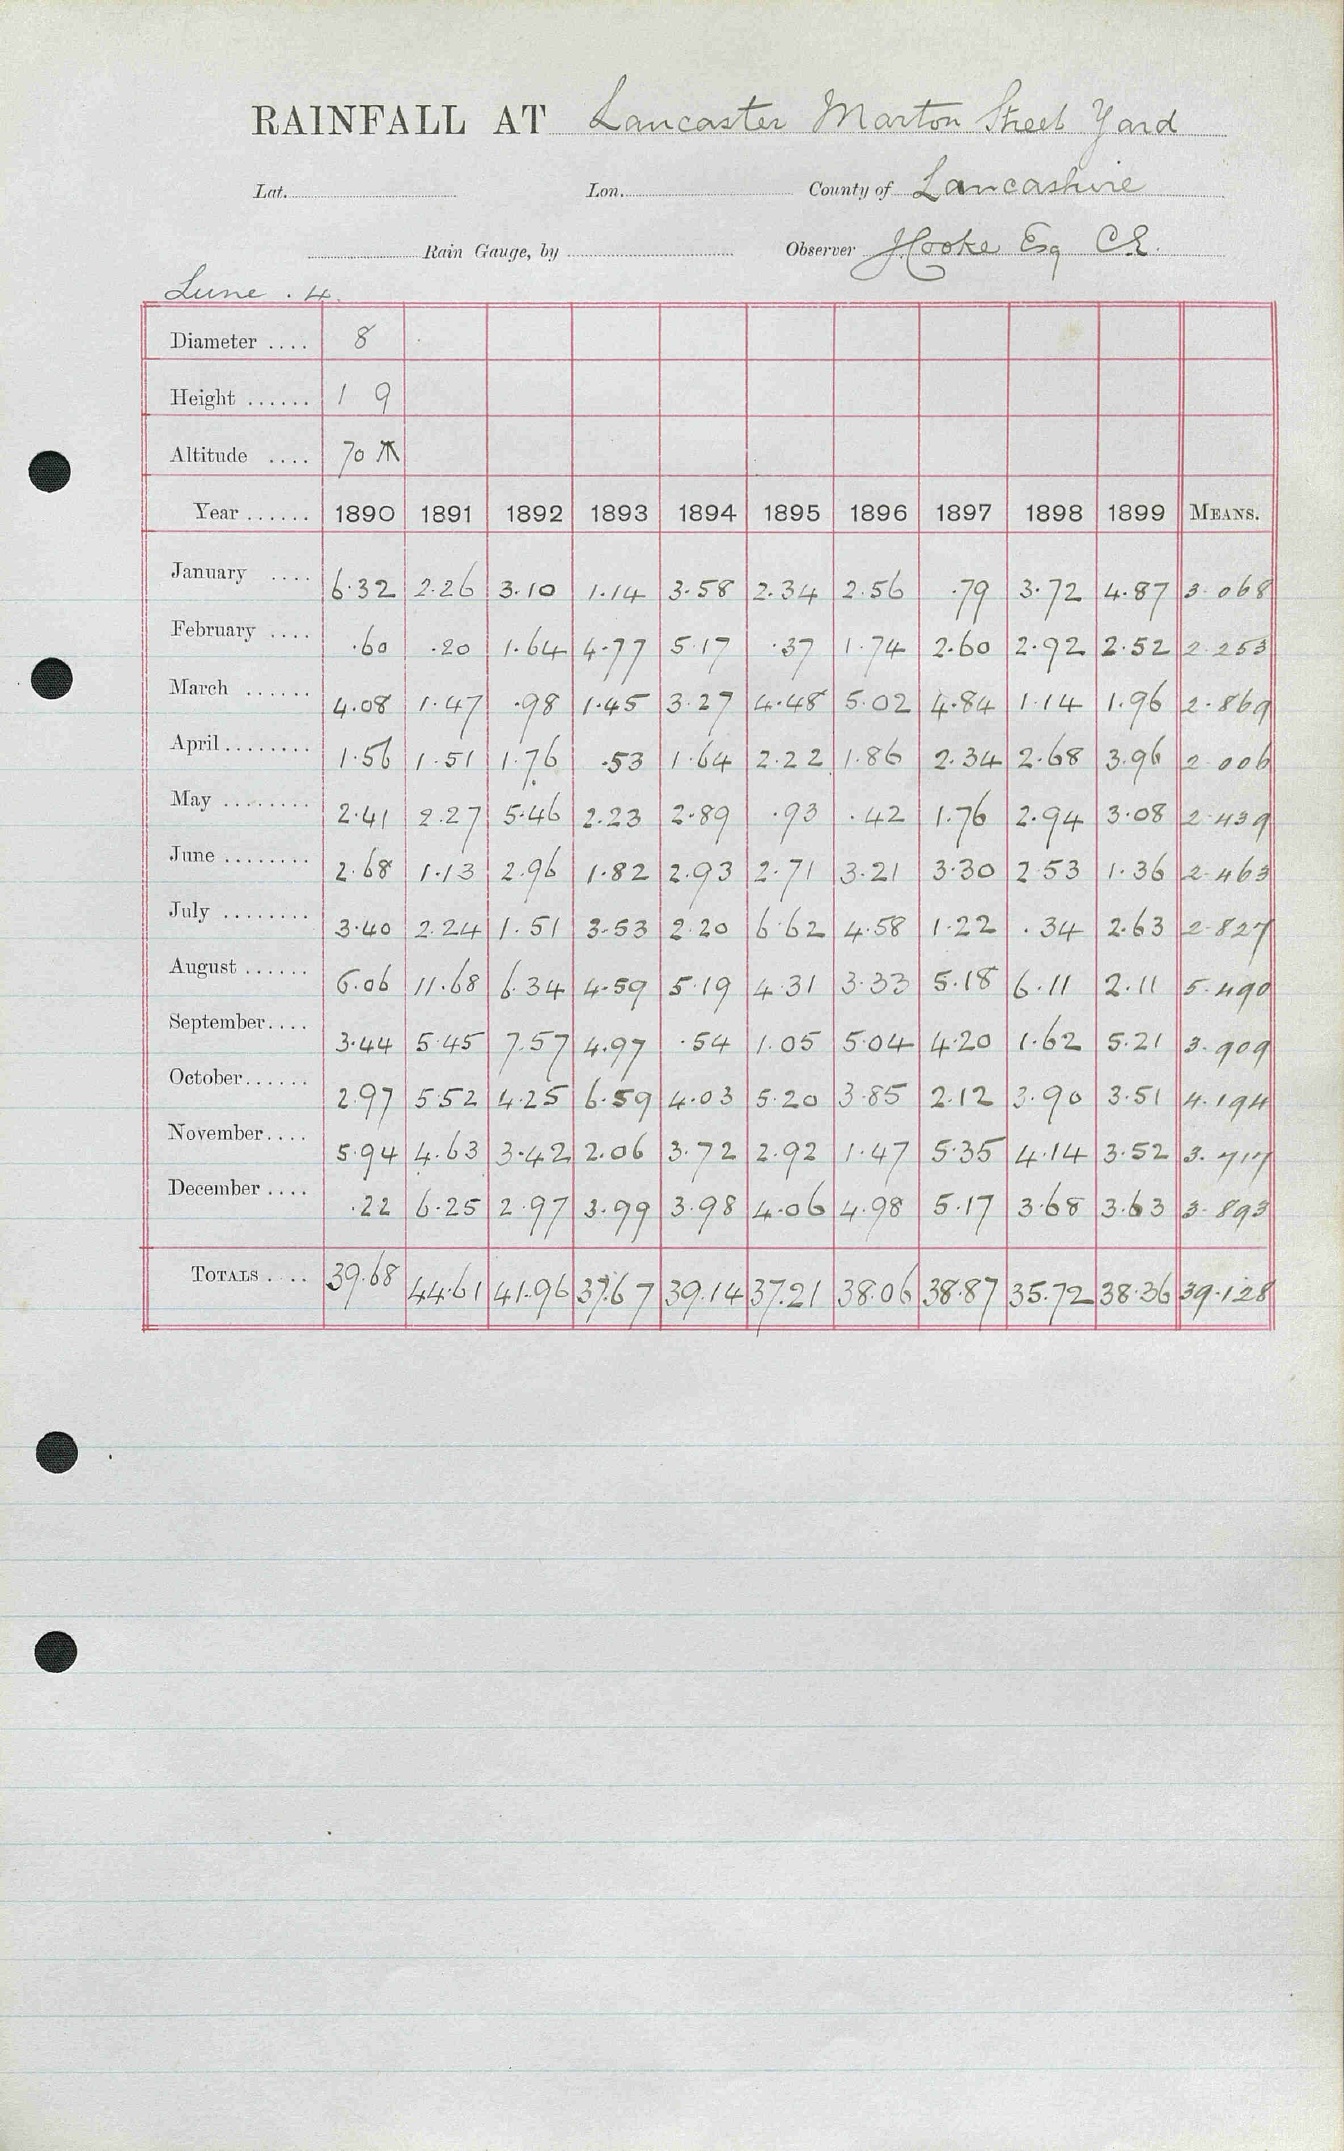 RAINFALL AT Lancaster Marton Street Yard
Lat. Lon. County of Lancashire
Rain Gauge, by Observer J Cooke Esq C.E.
Lune . 4.
Diameter .... 8
Height ...... 1 9
Altitude .... 70
Year ...... 1890 1891 1892 1893 1894 1895 1896 1897 1898 1899 MEANS.
January .... 6.32 2.26 3.10 1.14 3.58 2.34 2.56 .79 3.72 4.87 3.068
February .... .60 .20 1.64 4.77 5.17 .37 1.74 2.60 2.92 2.52 2.253
March ...... 4.08 1.47 .98 1.45 3.27 4.48 5.02 4.84 1.14 1.96 2.869
April ........ 1.56 1.51 1.76 .53 1.64 2.22 1.86 2.34 2.68 3.96 2.006
May ........ 2.41 2.27 5.46 2.23 2.89 .93 .42 1.76 2.94 3.08 2.439
June ........ 2.68 1.13 2.96 1.82 2.93 2.71 3.21 3.30 2.53 1.36 2.463
July ........ 3.40 2.24 1.51 3.53 2.20 6.62 4.58 1.22 .34 2.63 2.827
August ...... 6.06 11.68 6.34 4.59 5.19 4.31 3.33 5.18 6.11 2.11 5.490
September.... 3.44 5.45 7.57 4.97 .54 1.05 5.04 4.20 1.62 5.21 3.909
October...... 2.97 5.52 4.25 6.59 4.03 5.20 3.85 2.12 3.90 3.51 4.194
November.... 5.94 4.63 3.42 2.06 3.72 2.92 1.47 5.35 4.14 3.52 3.717
December .... .22 6.25 2.97 3.99 3.98 4.06 4.98 5.17 3.68 3.63 3.893
TOTALS .... 39.68 44.61 41.96 37.67 39.14 37.21 38.06 38.87 35.72 38.36 39.128